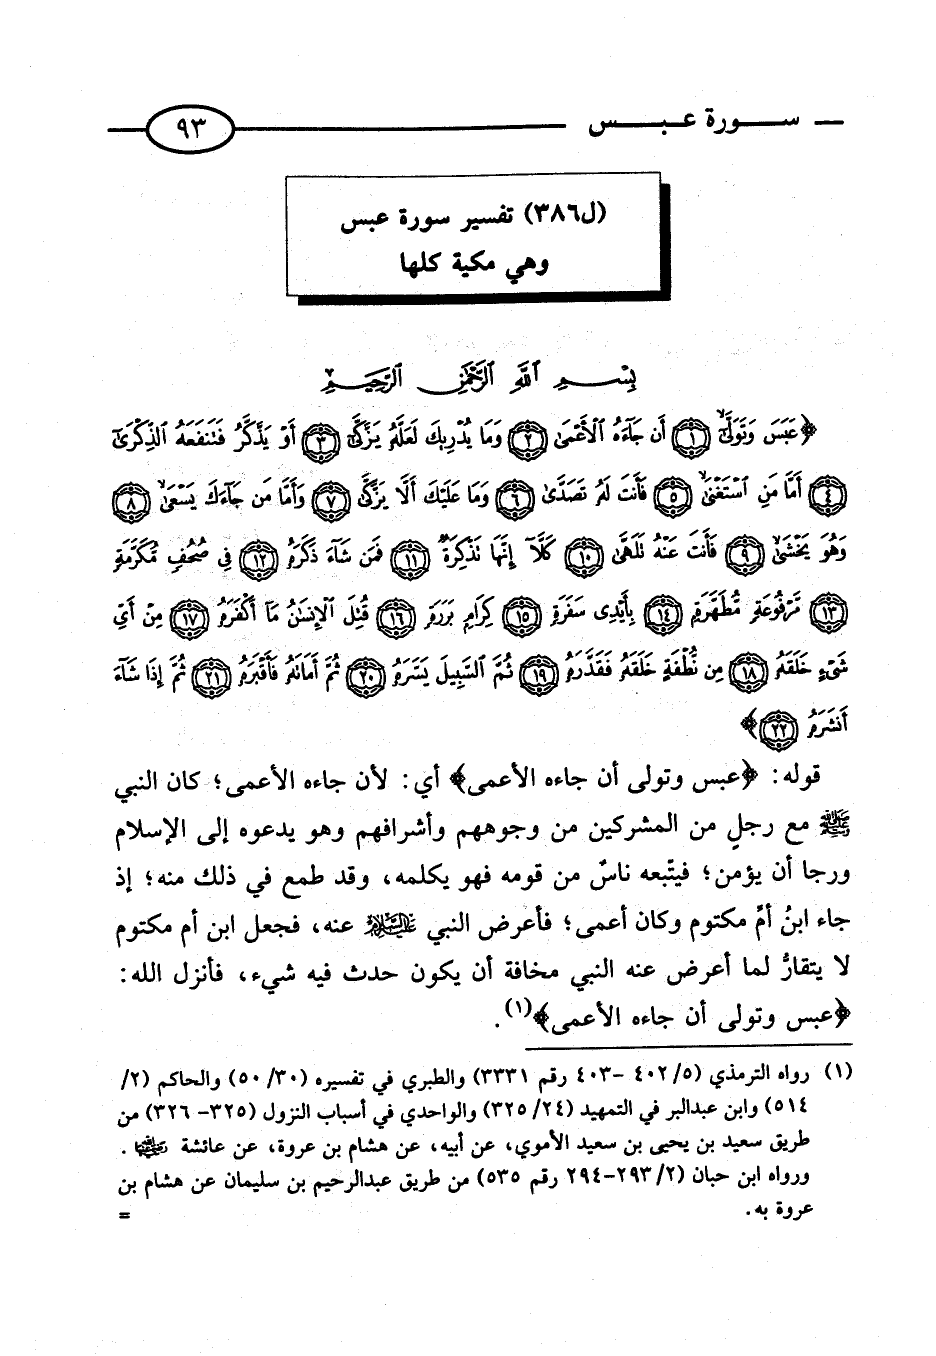 سورة عبس ٩٣
(ل٣٨٦) تفسير سورة عبس
وهي مكية كلها
بِسْمِ ٱللَّهِ ٱلرَّحْمَٰنِ ٱلرَّحِيمِ
﴿عَبَسَ وَتَوَلَّىٰٓ ١ أَن جَآءَهُ ٱلْأَعْمَىٰ ٢ وَمَا يُدْرِيكَ لَعَلَّهُۥ يَزَّكَّىٰٓ ٣ أَوْ يَذَّكَّرُ فَتَنفَعَهُ ٱلذِّكْرَىٰٓ
٤ أَمَّا مَنِ ٱسْتَغْنَىٰ ٥ فَأَنتَ لَهُۥ تَصَدَّىٰ ٦ وَمَا عَلَيْكَ أَلَّا يَزَّكَّىٰ ٧ وَأَمَّا مَن جَآءَكَ يَسْعَىٰ ٨
وَهُوَ يَخْشَىٰ ٩ فَأَنتَ عَنْهُ تَلَهَّىٰ ١٠ كَلَّآ إِنَّهَا تَذْكِرَةٌ ١١ فَمَن شَآءَ ذَكَرَهُۥ ١٢ فِى صُحُفٍ مُّكَرَّمَةٍ
١٣ مَّرْفُوعَةٍ مُّطَهَّرَةٍۭ ١٤ بِأَيْدِى سَفَرَةٍ ١٥ كِرَامٍۭ بَرَرَةٍ ١٦ قُتِلَ ٱلْإِنسَٰنُ مَآ أَكْفَرَهُۥ ١٧ مِنْ أَىِّ
شَىْءٍ خَلَقَهُۥ ١٨ مِن نُّطْفَةٍ خَلَقَهُۥ فَقَدَّرَهُۥ ١٩ ثُمَّ ٱلسَّبِيلَ يَسَّرَهُۥ ٢٠ ثُمَّ أَمَاتَهُۥ فَأَقْبَرَهُۥ ٢١ ثُمَّ إِذَا شَآءَ
أَنشَرَهُۥ ٢٢﴾
قوله: ﴿عبس وتولى أن جاءه الأعمى﴾ أي: لأن جاءه الأعمى؛ كان النبي
ﷺ مع رجلٍ من المشركين من وجوههم وأشرافهم وهو يدعوه إلى الإسلام
ورجا أن يؤمن؛ فيتّبعه ناسٌ من قومه فهو يكلمه، وقد طمع في ذلك منه؛ إذ
جاء ابنُ أمِّ مكتوم وكان أعمى؛ فأعرض النبي عليه السلام عنه، فجعل ابن أم مكتوم
لا يتقارُّ لما أعرض عنه النبي مخافة أن يكون حدث فيه شيء، فأنزل الله:
﴿عبس وتولى أن جاءه الأعمى﴾(١).
(١) رواه الترمذي (٥/ ٤٠٢ -٤٠٣ رقم ٣٣٣١) والطبري في تفسيره (٣٠/ ٥٠) والحاكم (٢/
٥١٤) وابن عبدالبر في التمهيد (٢٤/ ٣٢٥) والواحدي في أسباب النزول (٣٢٥- ٣٢٦) من
طريق سعيد بن يحيى بن سعيد الأموي، عن أبيه، عن هشام بن عروة، عن عائشة رضي الله عنها.
ورواه ابن حبان (٢/ ٢٩٣-٢٩٤ رقم ٥٣٥) من طريق عبدالرحيم بن سليمان عن هشام بن
عروة به. =